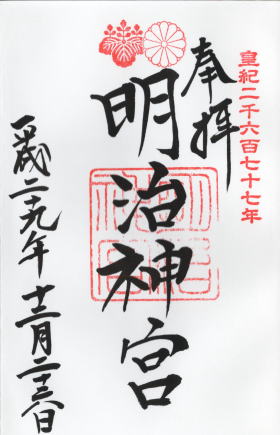 皇紀二千六百七十七年
奉拝
明治神宮
平成二十九年十二月二十三日